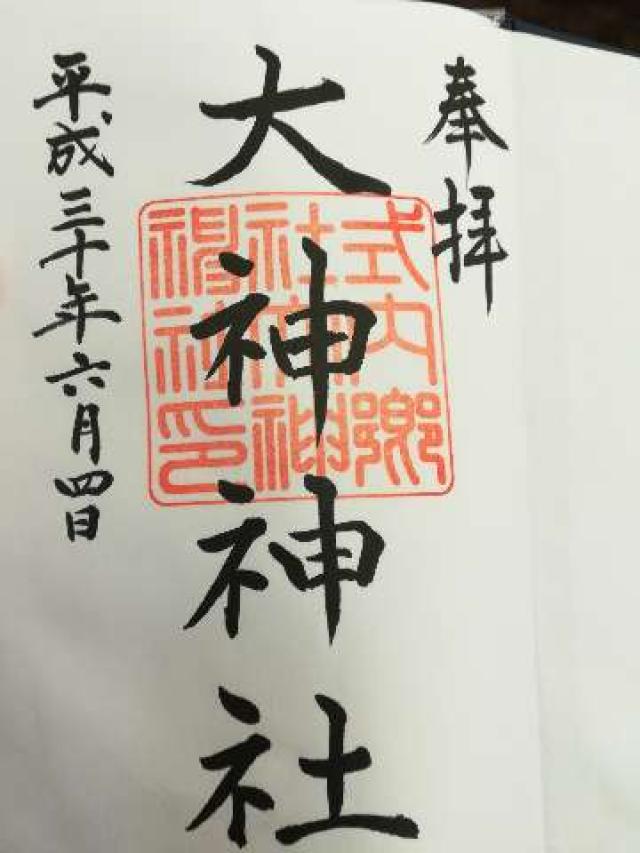 奉拝
大神神社
式内郷
社神
社印
平成三十年六月四日